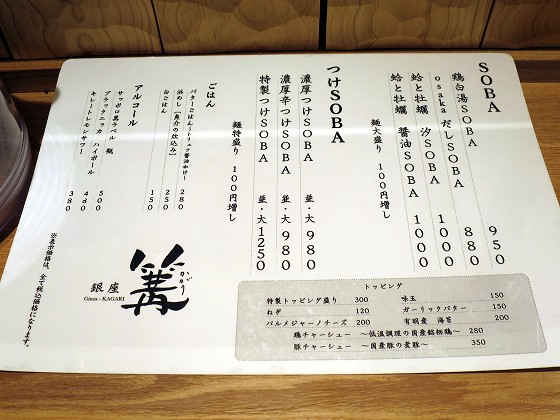 SOBA
鶏白湯SOBA 950
osaka だしSOBA 880
蛤と牡蠣 汐SOBA 1000
蛤と牡蠣 醤油SOBA 1000
麺大盛り 100円増し
つけSOBA
濃厚つけSOBA 並・大 980
濃厚辛つけSOBA 並・大 980
特製つけSOBA 並・大 1250
麺特盛り 100円増し
ごはん
バターごはん〜トリュフ醤油かけ〜 280
浜めし(魚介の炊込み) 250
白ごはん 150
アルコール
サッポロ黒ラベル 瓶 500
ブラックニッカ ハイボール 460
キレートレモンサワー 380
※表示価格は、全て税込価格になります。
篝
かがり
銀座
Ginza - KAGARI
トッピング
特製トッピング盛り 300
味玉 150
ねぎ 120
ガーリックバター 150
パルメジャーノチーズ 200
有明産 海苔 200
鶏チャーシュー 〜低温調理の国産銘柄鶏〜 280
豚チャーシュー 〜国産豚の煮豚〜 350